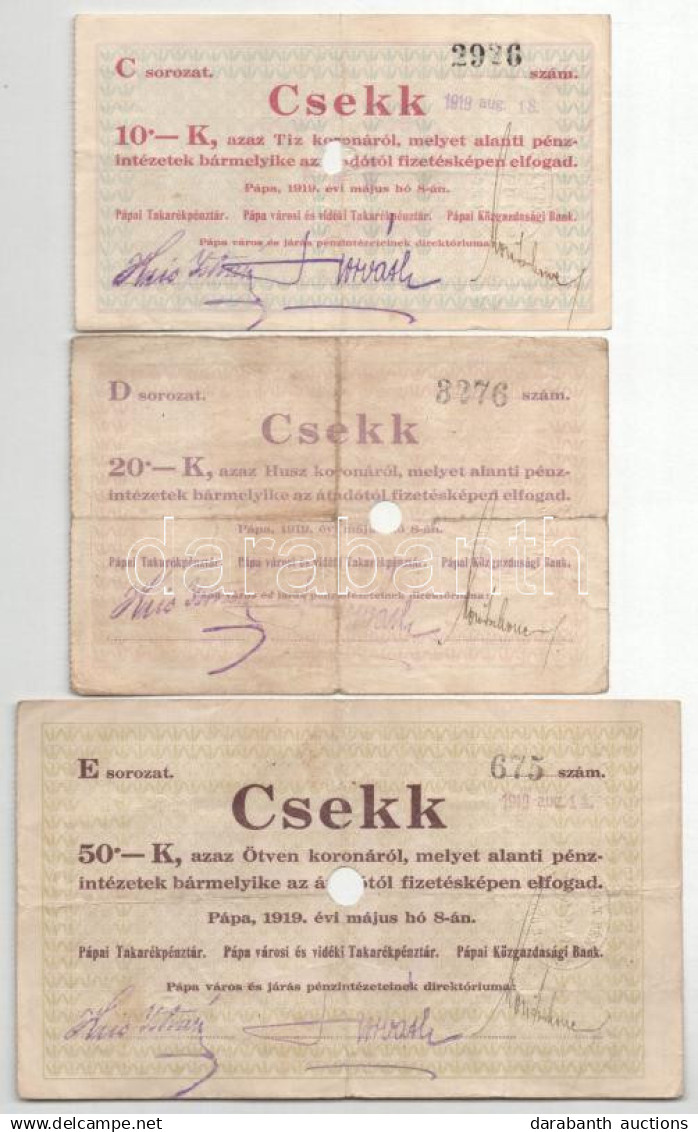 C sorozat. 2926 szám.
Csekk
1919 aug. 18.
10·— K, azaz Tiz koronáról, melyet alanti pénz-
intézetek bármelyike az átadótól fizetésképen elfogad.
Pápa, 1919. évi május hó 8-án.
Pápai Takarékpénztár. Pápa városi és vidéki Takarékpénztár. Pápai Közgazdasági Bank.
Pápa város és járás pénzintézeteinek direktóriuma:
Horváth
D sorozat. 3276 szám.
Csekk
20·— K, azaz Husz koronáról, melyet alanti pénz-
intézetek bármelyike az átadótól fizetésképen elfogad.
Pápa, 1919. évi május hó 8-án.
darabanth
Pápai Takarékpénztár. Pápa városi és vidéki Takarékpénztár. Pápai Közgazdasági Bank.
Pápa város és járás pénzintézeteinek direktóriuma:
Horváth
E sorozat. 675 szám.
1919 aug. 18.
Csekk
50·— K, azaz Ötven koronáról, melyet alanti pénz-
intézetek bármelyike az átadótól fizetésképen elfogad.
Pápa, 1919. évi május hó 8-án.
Pápai Takarékpénztár. Pápa városi és vidéki Takarékpénztár. Pápai Közgazdasági Bank.
Pápa város és járás pénzintézeteinek direktóriuma:
Horváth
delcampe.net
darabanth auctions